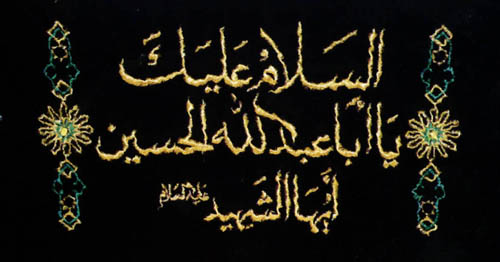 السَلامُ عَلَيكَ
يَا أَبا عبد الله الحسين
أيّها الشهيد عليه السلام